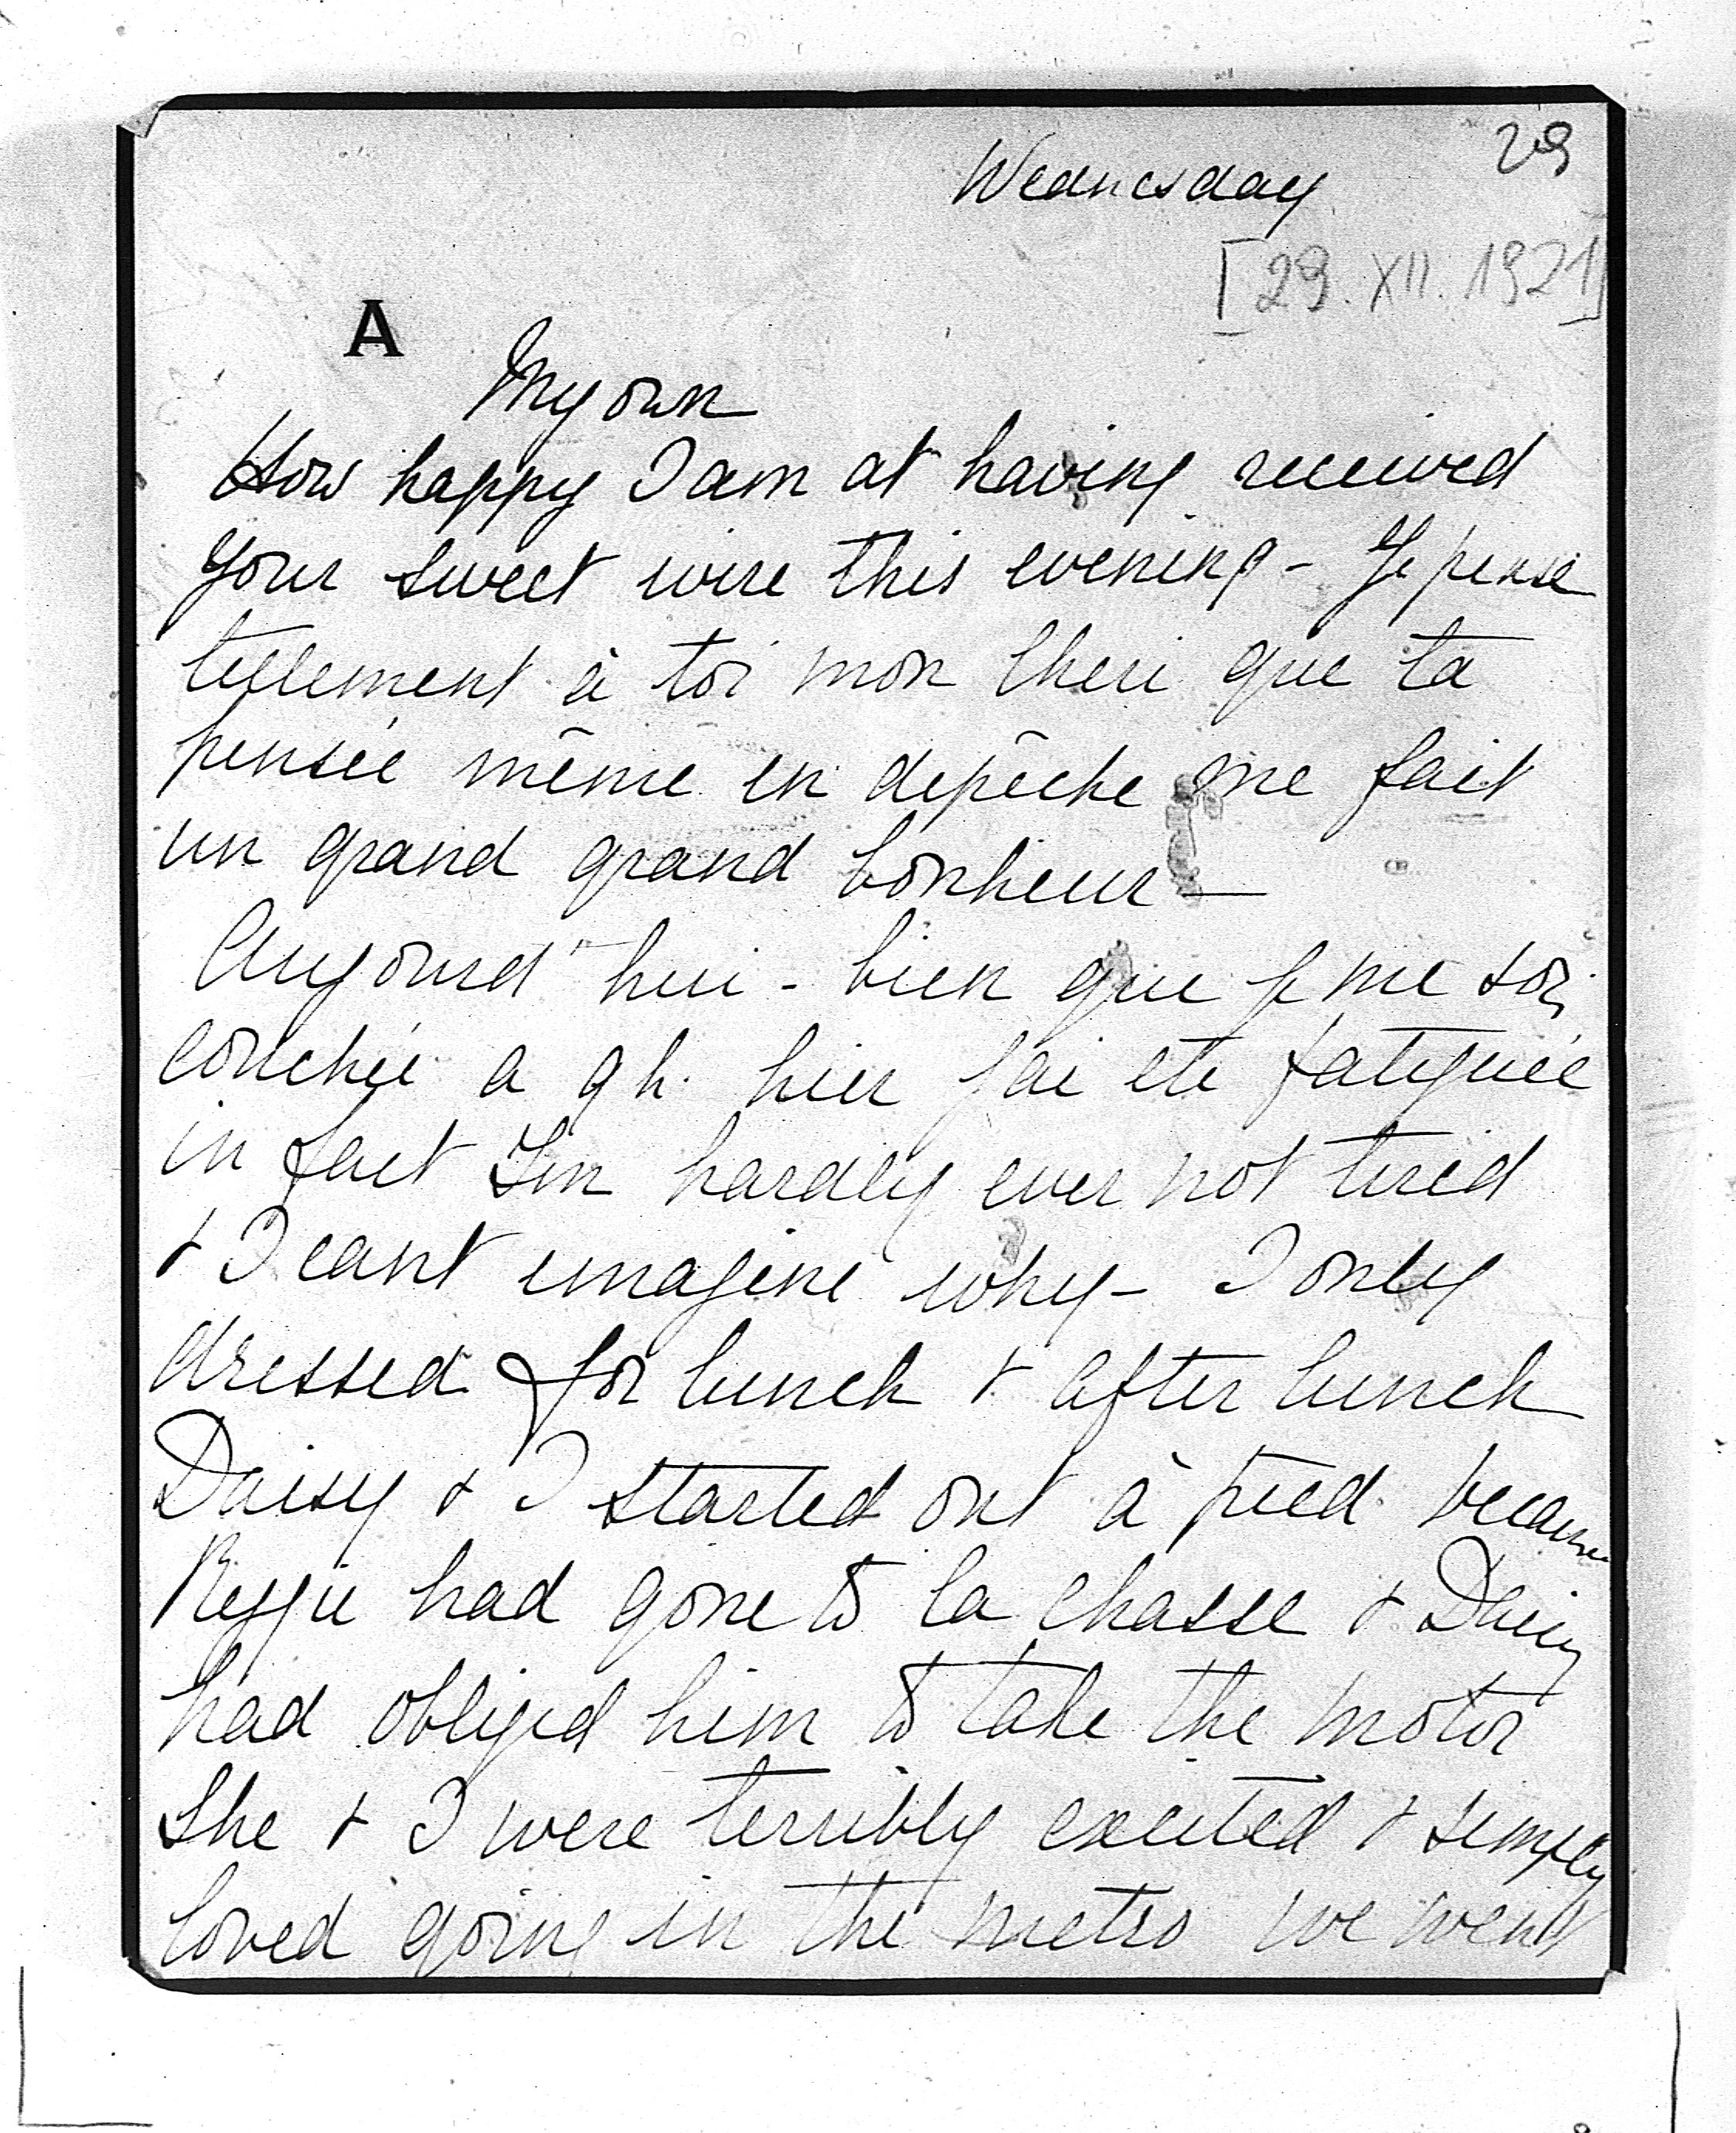 29
Wednesday
[29. XII. 1921]
A
My own
How happy I am at having received
your sweet wire this evening - Je pense
tellement à toi mon cheri que ta
pensée même en depêche me fait
un grand grand bonheur —
Aujourd'hui - bien que je me sois
couchée a 9 h. hier j'ai ete fatiguée
in fact I'm hardly ever not tired
& I cant imagine why - I only
dressed for lunch & after lunch
Daisy & I started out à pied because
Reggie had gone to la chasse & Daisy
had obliged him to take the motor
She & I were terribly excited & simply
loved going in the metro we went